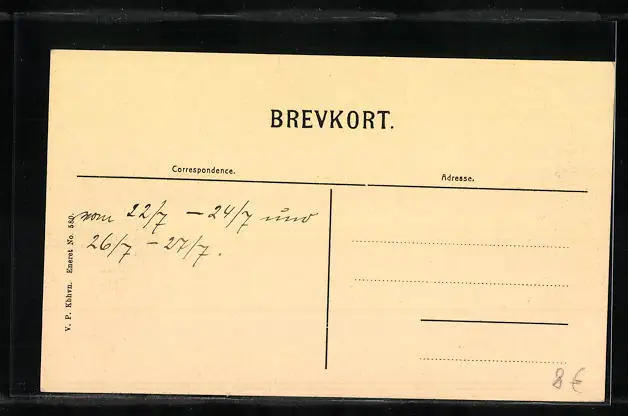 BREVKORT.
Correspondence.
Adresse.
vom 22/7 – 24/7 und
26/7 – 27/7.
V. P. Kbhvn. Eneret No. 580.
8 €